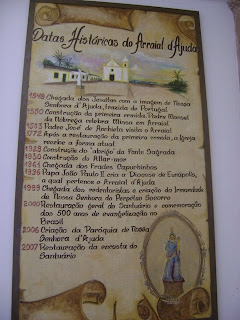 Datas Históricas do Arraial d'Ajuda
1549 Chegada dos Jesuítas com a imagem de Nossa
Senhora d'Ajuda, trazida de Portugal
1550 Construção da primeira ermida, Padre Manoel
da Nóbrega celebra Missa em Arraial
Padre José de Anchieta visita o Arraial
1772 Após a restauração da primeira ermida, a Igreja
recebe a forma atual
Construção do "abrigo" da Fonte Sagrada
Construção do Altar-mor
Chegada dos Frades Capuchinhos
Papa João Paulo II cria a Diocese de Eunápolis,
a qual pertence o Arraial d'Ajuda
1999 Chegada dos redentoristas e criação da Irmandade
de Nossa Senhora do Perpétuo Socorro
2000 Restauração geral do Santuário e comemoração
dos 500 anos de evangelização no
Brasil
2006 Criação da Paróquia de Nossa
Senhora d'Ajuda
2007 Restauração da encosta do
Santuário